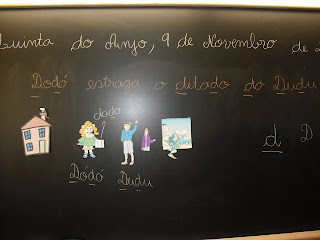 Quinta do Anjo, 9 de Novembro de 2
Dodó estraga o ditado do Dudu
dado
d D
Dódó Dudu